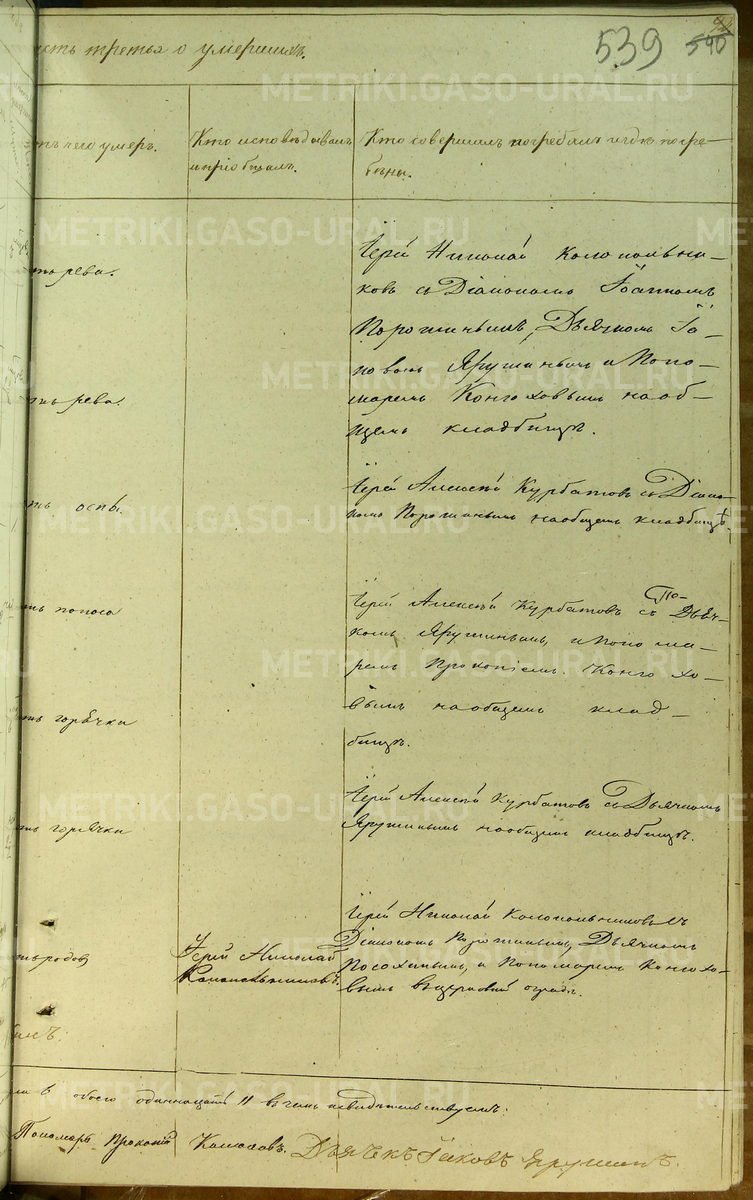 539 540
сть третья о умершихъ.
отъ чего умеръ.
Кто исповѣдывалъ
и пріобщалъ.
Кто совершалъ погребалъ и гдѣ погре-
бены.
рева.
Іерей Николай Колокольни-
ковъ съ Діакономъ Іоанномъ
Порошинымъ, Дьячкомъ Іа-
ковомъ Ярушинымъ и Поно-
маремъ Конюховымъ на об-
щемъ кладбищѣ.
рева.
ть оспы.
Іерей Алексѣй Курбатовъ съ Діако-
номъ Порошинымъ на общемъ кладбищѣ.
ть поноса
Іерей Алексѣй Курбатовъ съ Дьяч-
комъ Ярушинымъ, и Поnoма-
ремъ Прокопіемъ
вымъ на общемъ клад-
бищѣ.
ть горячки
ть горячки
Іерей Алексѣй Курбатовъ съ Дьячкомъ
Ярушинымъ на общемъ кладбищѣ.
ть родовъ
Іерей Николай
Колокольниковъ.
Іерей Николай Колокольниковъ съ
Діакономъ Порошинымъ, Дьячкомъ
Посохинымъ, и Пономаремъ Конюхо-
вымъ въ церковной оградѣ.
6 обоего одиннадцать 11 въ чемъ и свидѣтельствуемъ:
Пономарь Прокопій Дьячекъ Іаковъ Ярушинъ.
METRIKI.GASO-URAL.RU